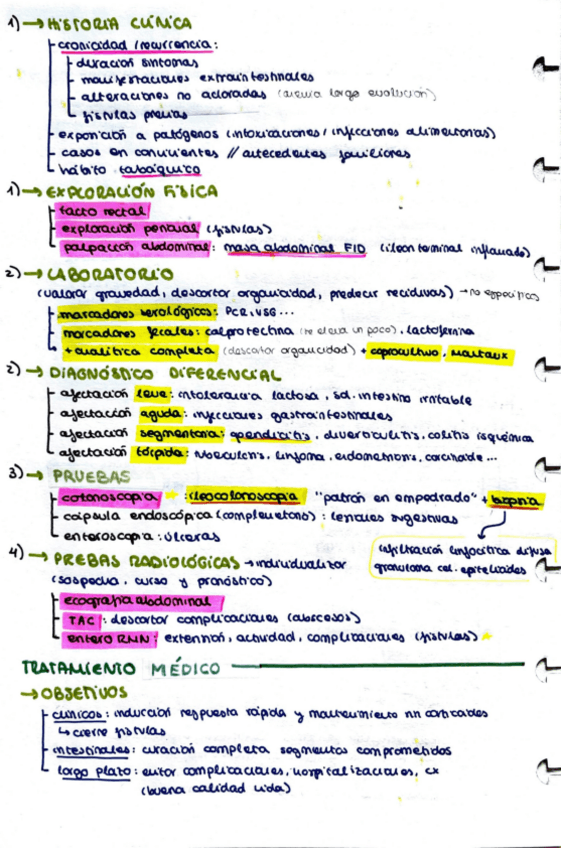 1) → HISTORIA CLÍNICA
cronicidad / recurrencia:
duración síntomas
manifestaciones extraintestinales
alteraciones no aclaradas (anemia larga evolución)
fístulas previas
exposición a patógenos (intoxicaciones / infecciones alimentarias)
casos en convivientes // antecedentes familiares
hábito tabáquico
1) → EXPLORACIÓN FÍSICA
tacto rectal
exploración perianal (fístulas)
palpación abdominal: masa abdominal FID (íleon terminal inflamado)
2) → LABORATORIO
(valorar gravedad, descartar organicidad, predecir recidivas) → no específicos
marcadores serológicos: PCR, VSG...
marcadores fecales: calprotectina (se eleva un poco), lactoferrina
+ analítica completa (descartar organicidad) + coprocultivo, Mantoux
2) → DIAGNÓSTICO DIFERENCIAL
afectación leve: intolerancia lactosa, sd. intestino irritable
afectación aguda: infecciones gastrointestinales
afectación segmentaria: apendicitis, diverticulitis, colitis isquémica
afectación tórpida: vasculitis, linfoma, endometriosis, carcinoide...
3) → PRUEBAS
colonoscopia → : ileocolonoscopia "patrón en empedrado" + biopsia
cápsula endoscópica (complementario): lesiones sugestivas
enteroscopia: úlceras
infiltración linfocítica difusa
granuloma cel. epitelioides
4) → PREBAS RADIOLÓGICAS → individualizar
(sospecha, curso y pronóstico)
ecografía abdominal
TAC: descartar complicaciones (abscesos)
entero RMN: extensión, actividad, complicaciones (fístulas)
TRATAMIENTO MÉDICO
→ OBJETIVOS
clínicos: inducción respuesta rápida y mantenimiento sin corticoides
↳ cierre fístulas
intestinales: curación completa segmentos comprometidos
largo plazo: evitar complicaciones, hospitalizaciones, cx
(buena calidad vida)